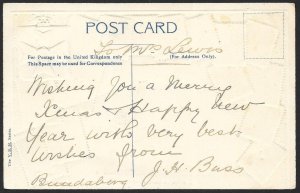 POST CARD
To Mrs Lewis
For Postage in the United Kingdom only
This Space may be used for Correspondence
(For Address Only).
Wishing You a Merry
Xmas & Happy new
Year with very best
Wishes from
J. H. Buss
Bundaberg